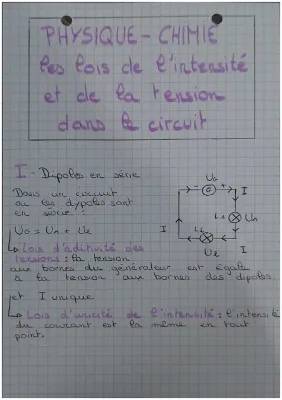 PHYSIQUE - CHIMIE
les lois de l'intensité
et de la tension
dans le circuit
I - Dipoles en série
Dans un circuit
ou les dypoles sont
en série :
U0 = U1 + U2
Lois d'aditivité des
tensions : la tension
aux bornes du générateur est égale
à la tension aux bornes des dipoles.
et I unique
Lois d'unicité de l'intensité : l'intensité
du courant est la même en tout
point.
U0
- +
I
L1
U1
I
L2
I
U2